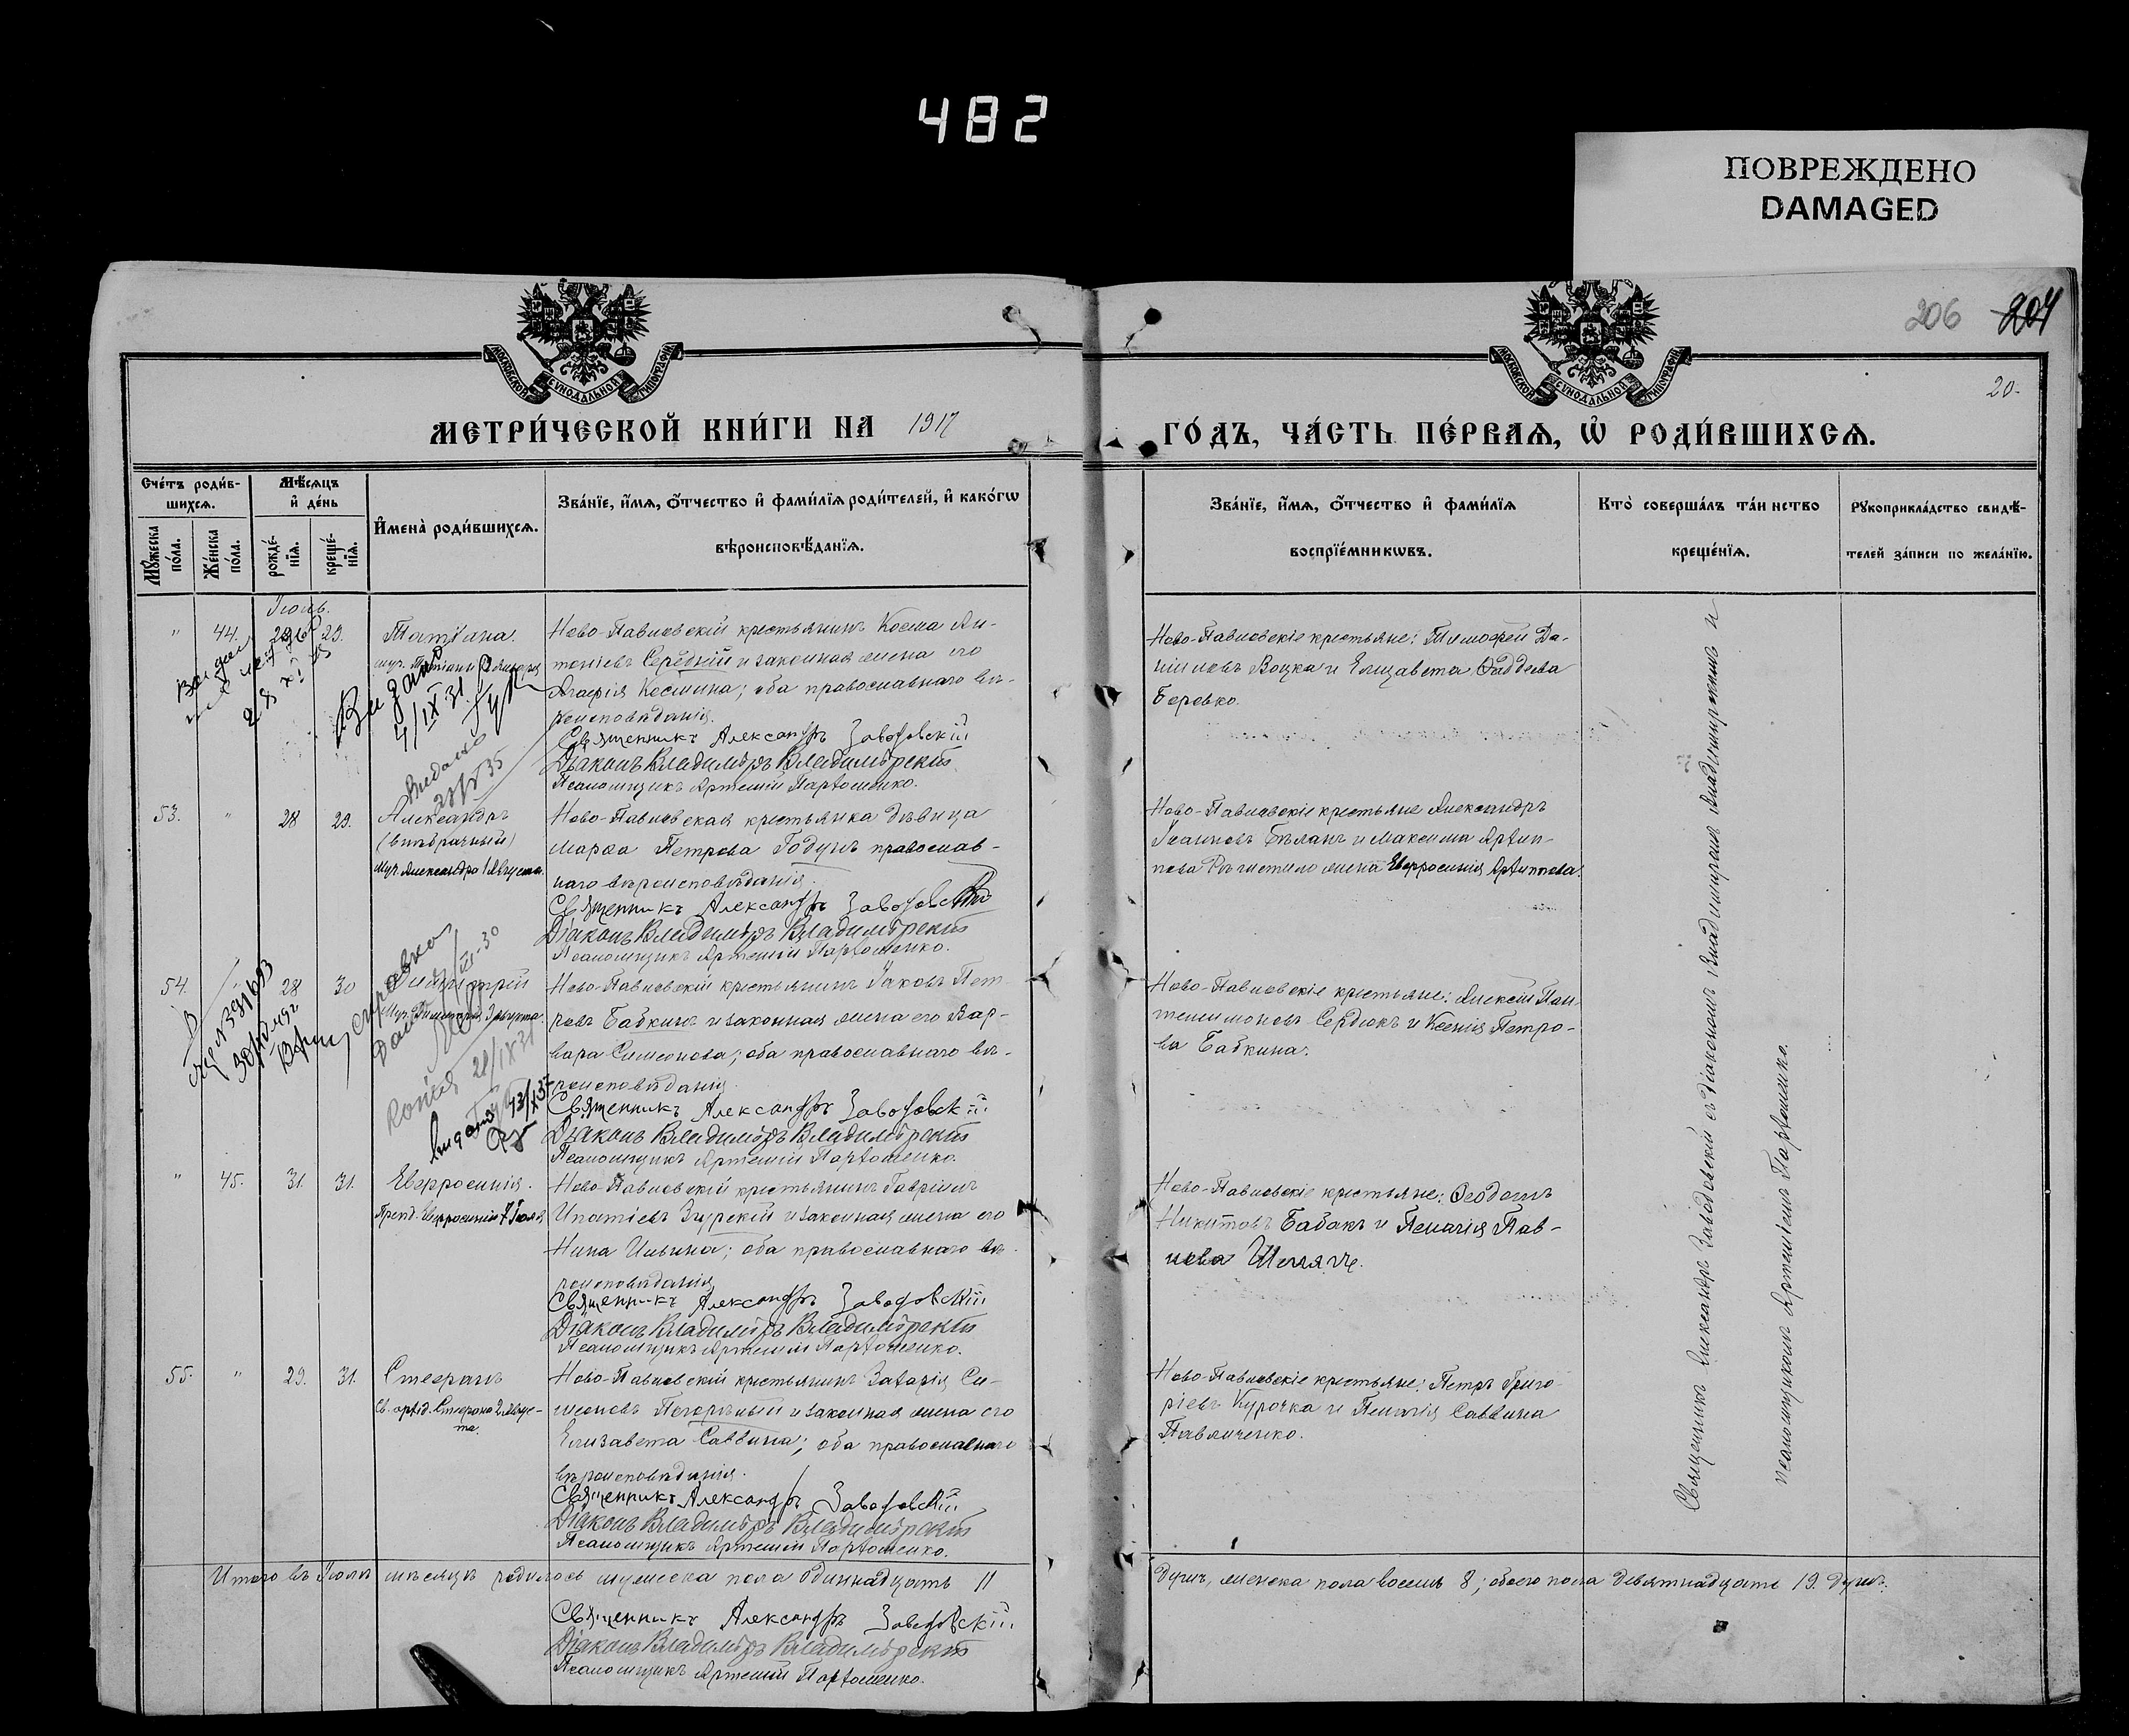 482
ПОВРЕЖДЕНО
DAMAGED
206 204
20.
МОСКОВСКОЙ СУНОДАЛЬНОЙ ТИПОГРАФІИ
МОСКОВСКОЙ СУНОДАЛЬНОЙ ТИПОГРАФІИ
МЕТРИ́ЧЕСКОЙ КНИ́ГИ НА 1917
ГО́ДЪ, ЧА́СТЬ ПЕ́РВАЯ, Ѡ҆ РОДИ́ВШИХСЯ.
Сче́тъ роди́в-
шихся.
Мꙋ́жеска по́ла.
Же́нска по́ла.
Мѣ́сяцъ
и҆ де́нь
рожде́-
нїя.
креще́-
нїя.
И҆мена̀ роди́вшихся.
Зва́нїе, и҆́мя, ѻ҆́тчество и҆ фами́лїя роди́телей, и҆ како́гѡ
вѣроисповѣ́данїя.
Зва́нїе, и҆́мя, ѻ҆́тчество и҆ фами́лїя
воспрїе́мникѡвъ.
Кто̀ соверша́лъ та́инство
креще́нїя.
Рꙋкоприкла́дство свидѣ́-
телей за́писи по жела́нїю.
Іюль.
" 44. 29. Татіана.
Ново-Павловскій крестьянинъ Косма Ан-
тоніевъ Середній и законная жена его
Агафія Космина; оба православнаго вѣ-
роисповѣданія.
Священникъ Александръ Заводовскій
Діаконъ Владиміръ Владимірскій
Псаломщикъ Артемій Пархоменко.
Ново-Павловскіе крестьяне: Тимофей Да-
ниловъ Воцка и Елизавета Фаддеева
Беревко.
Видано
4/IX 31.
Видано
53. " 28 29. Александръ
(внѣбрачный)
муч. Александра 1 Августа.
Ново-Павловская крестьянка дѣвица
Марѳа Петрова Годунъ православ-
наго вѣроисповѣданія.
Священникъ Александръ Заводовскій
Діаконъ Владиміръ Владимірскій
Псаломщикъ Артемій Пархоменко.
Ново-Павловскіе крестьяне Александръ
Іоанновъ Бѣланъ и Максима Архип-
жена Евфросинія Архиппова.
54. " 28 30 Димитрій
Ново-Павловскій крестьянинъ Іаковъ Пет-
ровъ Бабкинъ и законная жена его Вар-
вара Симеонова; оба православнаго вѣ-
роисповѣданія.
Священникъ Александръ Заводовскій
Діаконъ Владиміръ Владимірскій
Псаломщикъ Артемій Пархоменко.
Ново-Павловскіе крестьяне: Алексій Пан-
телимоновъ Сердюкъ и Ксенія Петро-
ва Бабкина.
справка
видано
" 45. 31. 31. Евфросинія.
Преп. Евфросиніи 7 Іюля
Ново-Павловскій крестьянинъ Гавріилъ
Ипатіевъ Зурскій и законная жена его
Нина Ильина; оба православнаго вѣ-
роисповѣданія.
Священникъ Александръ Заводовскій
Діаконъ Владиміръ Владимірскій
Псаломщикъ Артемій Пархоменко.
Ново-Павловскіе крестьяне: Ѳеодотъ
Никитовъ Бабакъ и Пелагія Пав-
лова
55. " 29. 31. Стефанъ
Св. архид. Стефана 2 Авгус-
та.
Ново-Павловскій крестьянинъ Захарія Си-
меоновъ Погорѣлый и законная жена его
Елизавета Саввина; оба православнаго
вѣроисповѣданія.
Священникъ Александръ Заводовскій
Діаконъ Владиміръ Владимірскій
Псаломщикъ Артемій Пархоменко.
Ново-Павловскіе крестьяне: Петръ Григо-
ріевъ Курочка и Пелагія Саввина
Павличенко.
Священникъ Александръ Заводовскій съ Діакономъ Владиміромъ Владимірскимъ и
псаломщикомъ Артеміемъ Пархоменко.
Итого въ Іюлѣ мѣсяцѣ родилось мужеска пола одиннадцать 11
душъ, женска пола восемь 8; обоего пола девятнадцать 19. душъ.
Священникъ Александръ Заводовскій
Діаконъ Владиміръ Владимірскій
Псаломщикъ Артемій Пархоменко.